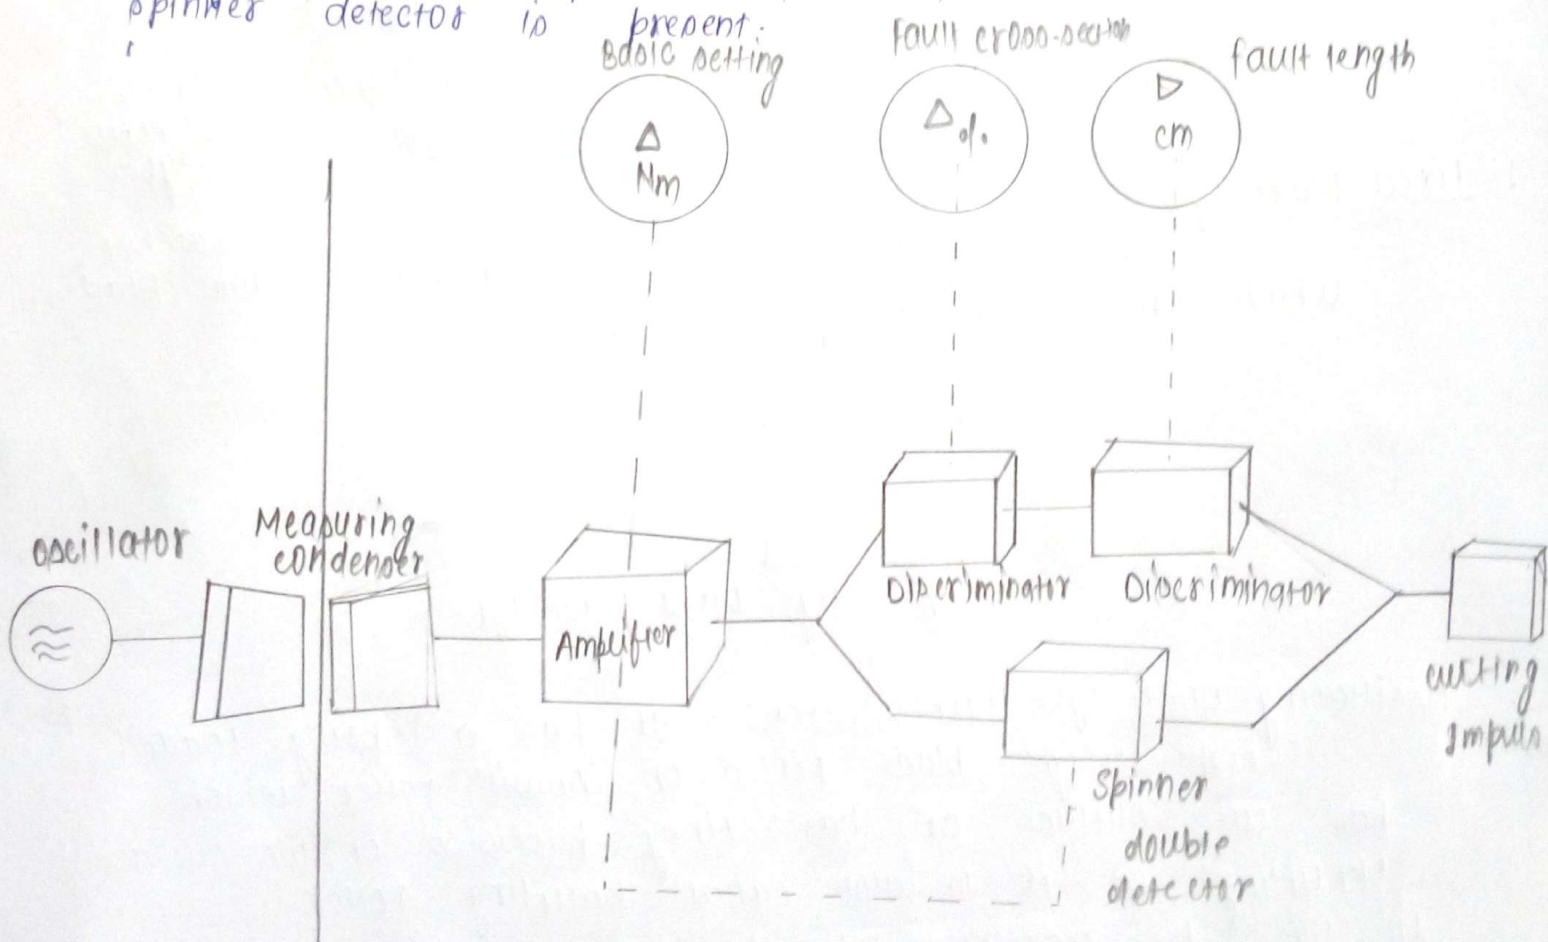 spinner detector is present.
Basic setting
Fault cross-section
fault length
Δ
Nm
Δ %
▷
cm
oscillator
Measuring
condenser
Amplifier
Discriminator
Discriminator
cutting
Impuls
Spinner
double
detector